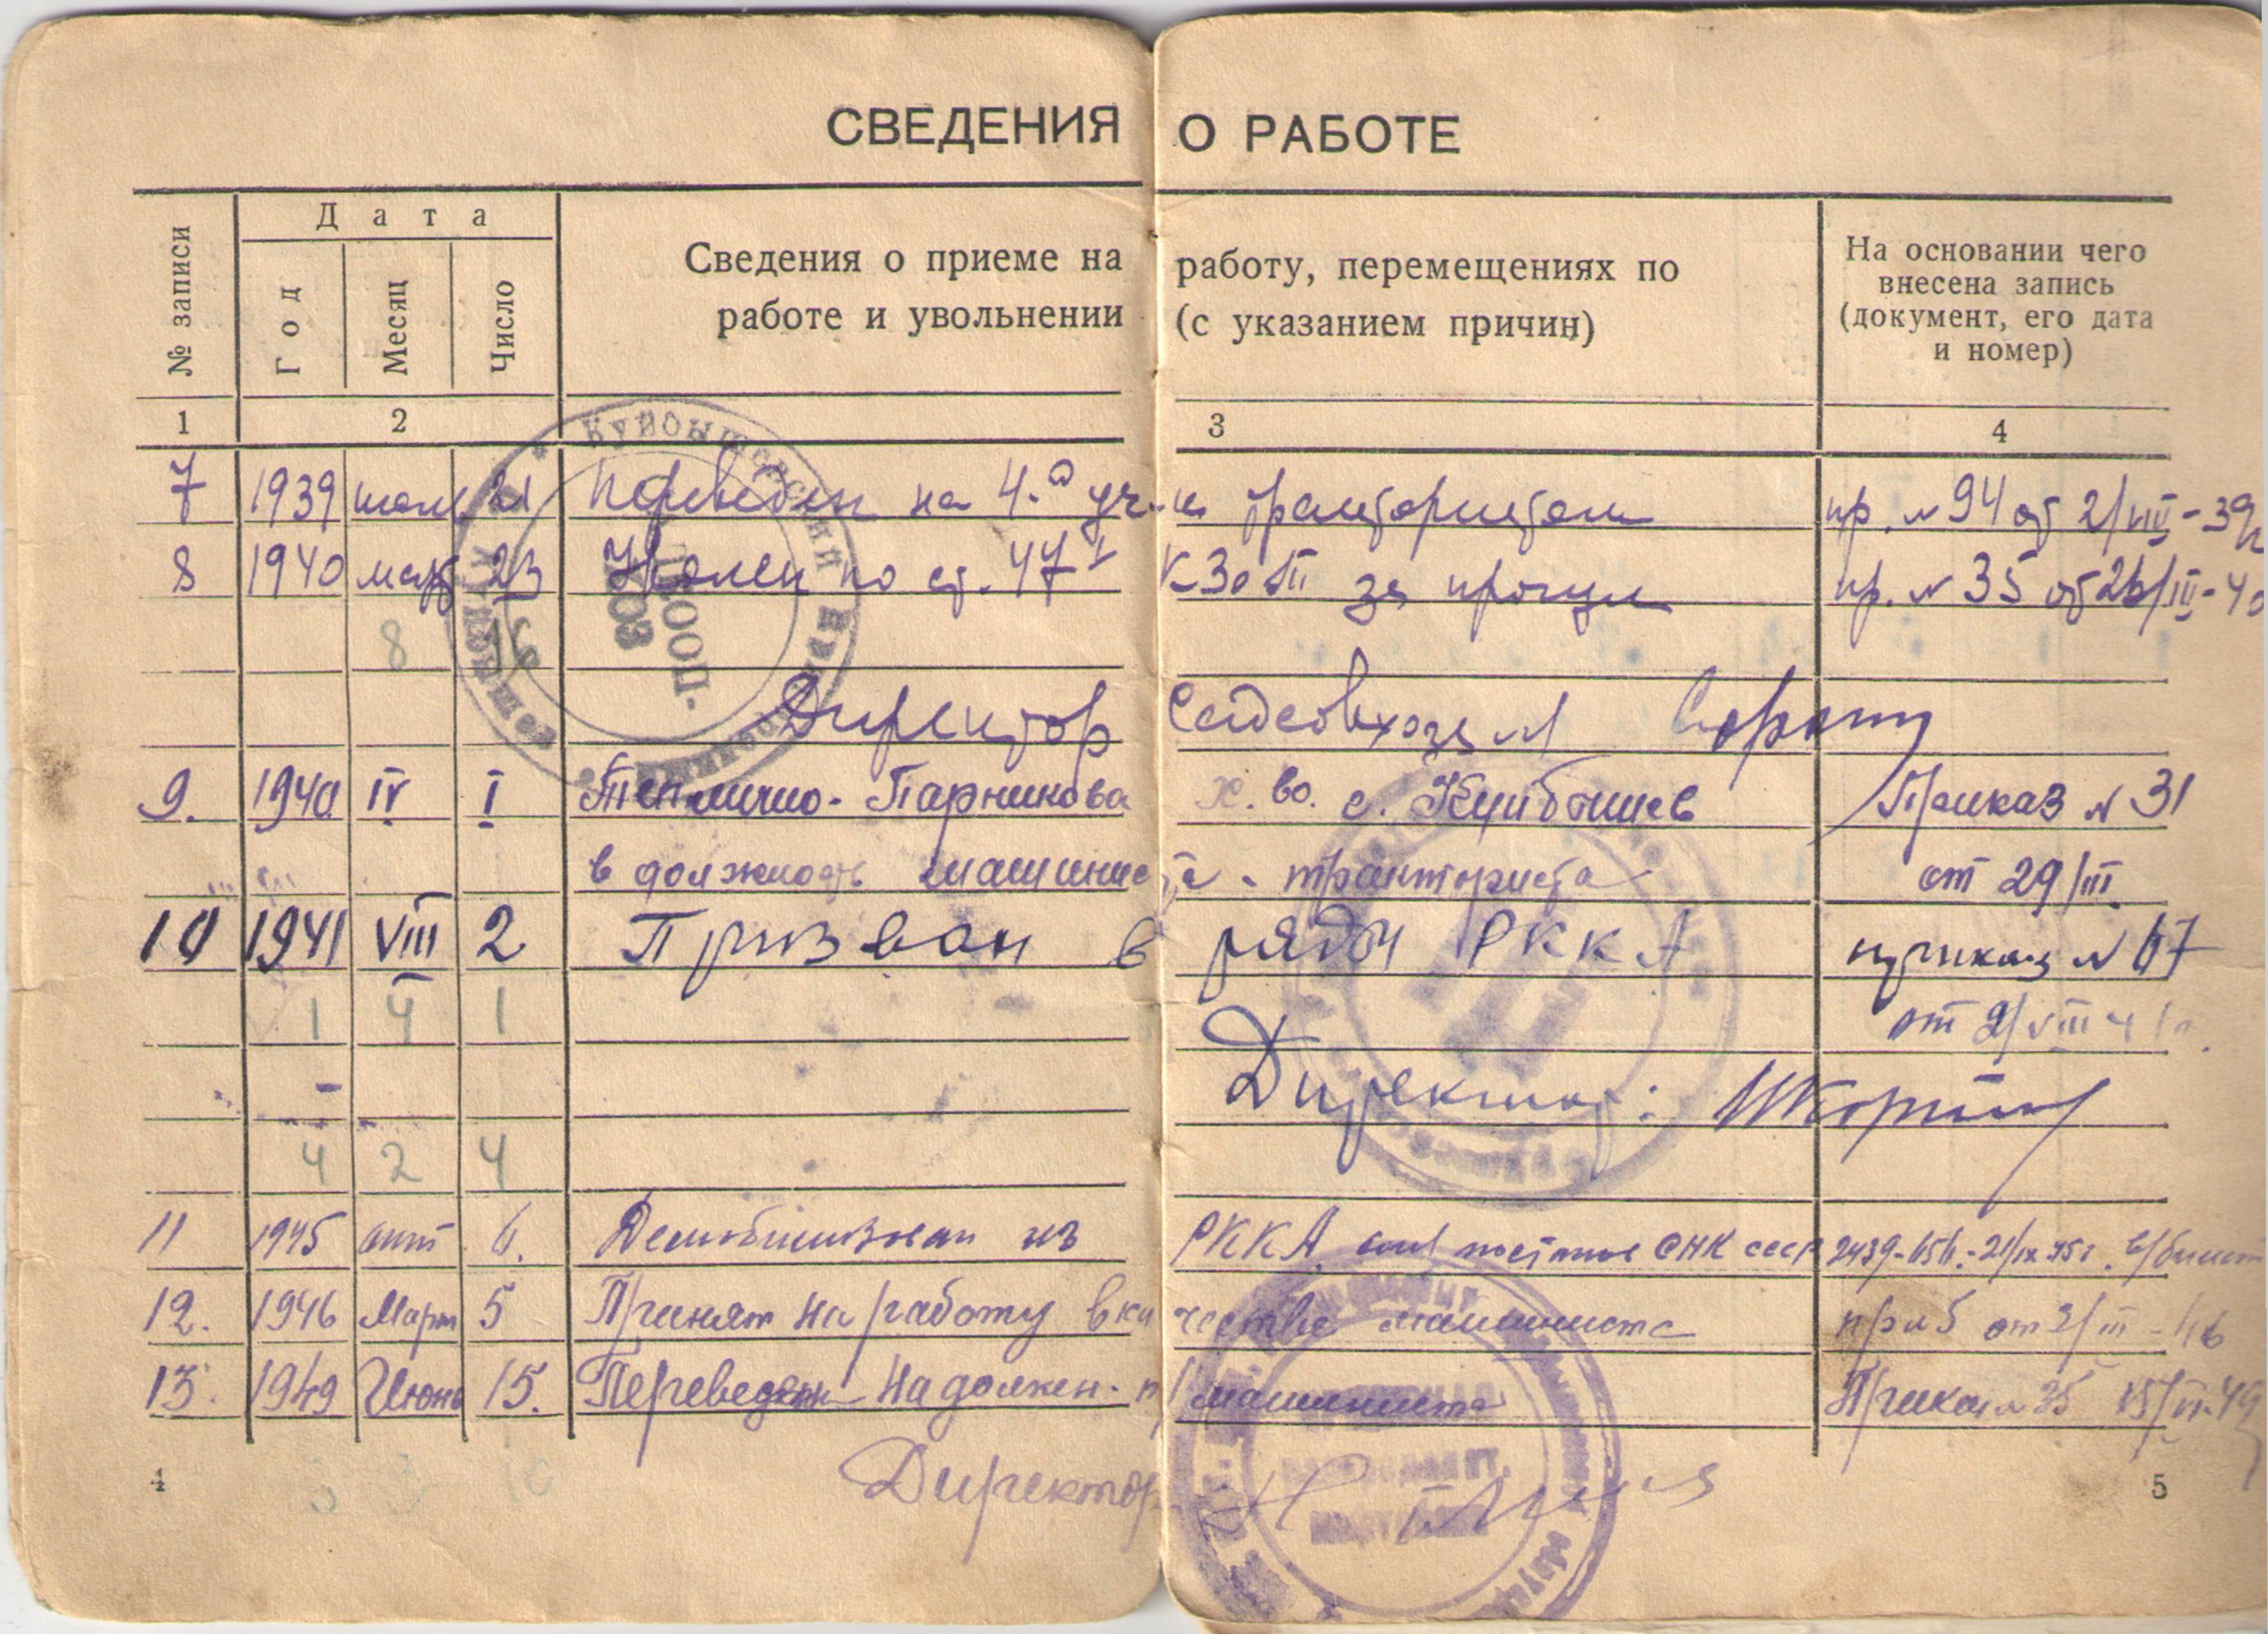 СВЕДЕНИЯ О РАБОТЕ
№ записи
Дата
Год
Месяц
Число
Сведения о приеме на работу, перемещениях по
работе и увольнении (с указанием причин)
На основании чего
внесена запись
(документ, его дата
и номер)
1 2 3 4
7 1939 21 Переведен на 4-й уч-к трактористом пр. № 94 от 2/VIII-39
8 1940 март 23 Уволен по ст. 47 КЗоТ за прогул пр. № 35 от 26/III-40
8 16
Директор
9. 1940 IV I Теплично-Парниково х.во. с. Куйбышев Приказ № 31
в должность машиниста-тракториста от 29/III.
10 1941 VIII 2 Призван в ряды РККА приказ № 67
1 4 1 от 2/VIII 41
Директор:
4 2 4
11 1945 окт 6. Демобилизован из РККА СНК СССР
12. 1946 Март 5 Принят на работу в качестве машиниста пр № 5 от 3/III-46
13. 1949 Июнь 15. Переведен на должен. машиниста Приказ № 35 15/VI-49
Директор
4 5